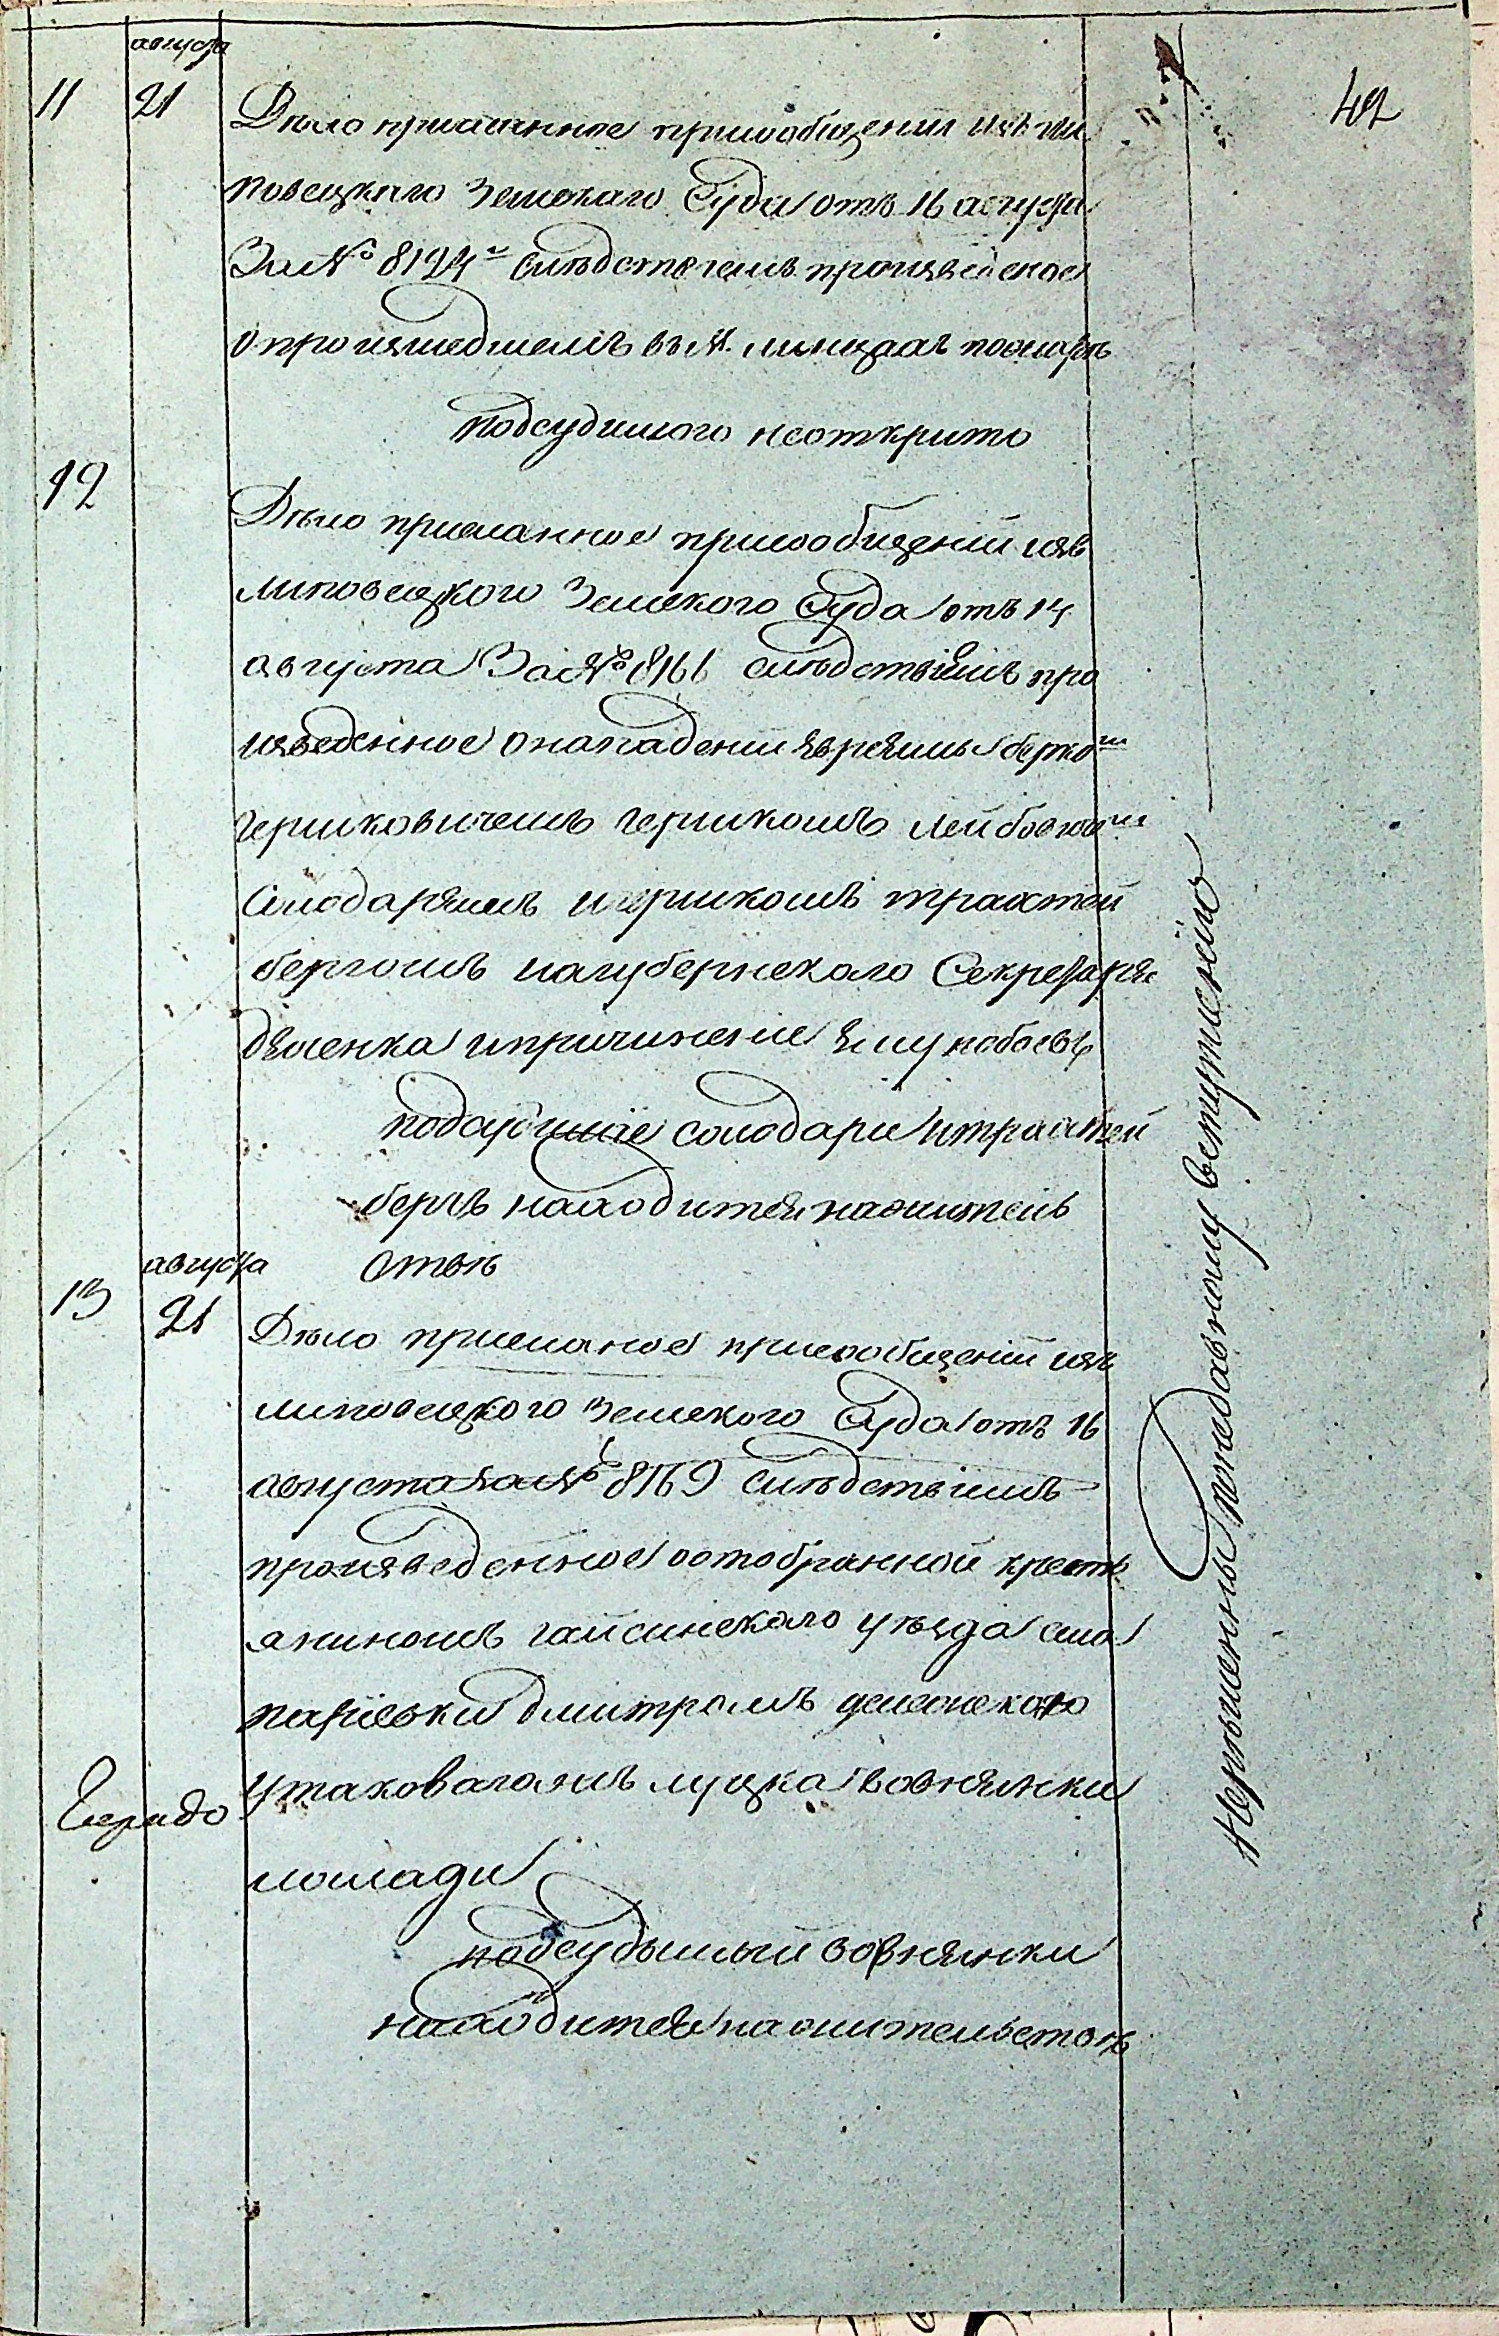 42
августа
11 21 Дѣло присланное присообщении изъ ли
повецкаго Земскаго Суда отъ 16 августа
За № 8124 слѣдствіемъ произведеное
о произшедшемъ въ М. линцахъ пожарѣ
подсудимого неоткрито
12
Дѣло присланное присообщеніи изъ
липовецкого Земского Суда отъ 14
августа За № 8161 слѣдствіемъ про
изведенное онападении Евреями берко
гершковичемъ гершкомъ лейбовю
Солодаремъ игершкомъ трахтен
бергомъ нагубернскаго Секретаря
ипричинение Ему побоевъ
подсудиміе солодари итрахтен
бергъ находится нажитель
ствѣ
августа
13 21 Дѣло присланое присообщеніи изъ
липовецкого Земского Суда отъ 16
августа за № 8169 слѣдствіемъ
произведенное оотобранной крестъ
яниномъ гайсинского уѣзда села
паріевки дмитромъ
у луцка вовнянки
лошади
подсудимый вовнянки
находится нажительствѣ
Нерѣшенны понедавному вступленію